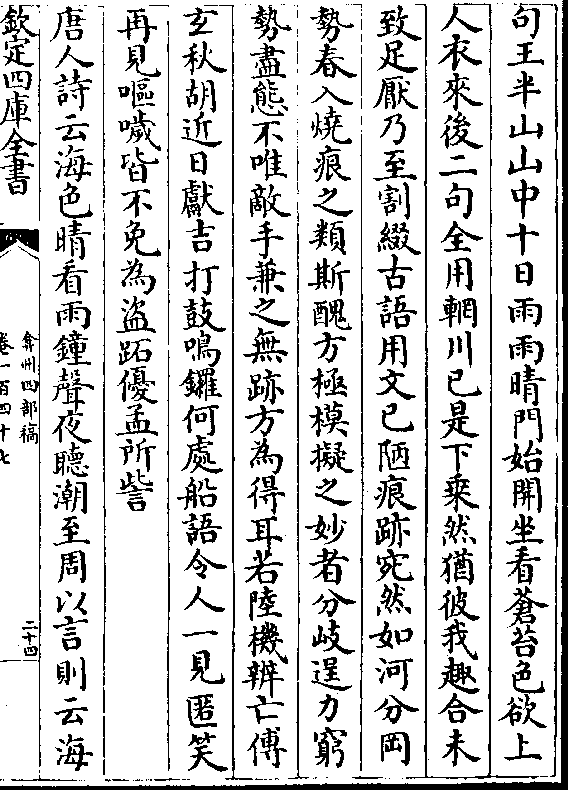 句王半山山中十日雨雨晴門始開坐看蒼苔色欲上
人衣來後二句全用輞川已是下乗然猶彼我趣合未
致足厭乃至割綴古語用文已陋痕跡宛然如河分岡
勢春入燒痕之類斯醜方極模擬之妙者分岐逞力窮
勢盡態不唯敵手兼之無跡方為得耳若陸機辨亡傅
玄秋胡近日獻吉打鼓鳴鑼何處船語令人一見匿笑
再見嘔噦皆不免為盗跖優孟所訾
唐人詩云海色晴看雨鐘聲夜聽潮至周以言則云海
欽定四庫全書
弇州四部稿
卷一百四十七
二十四